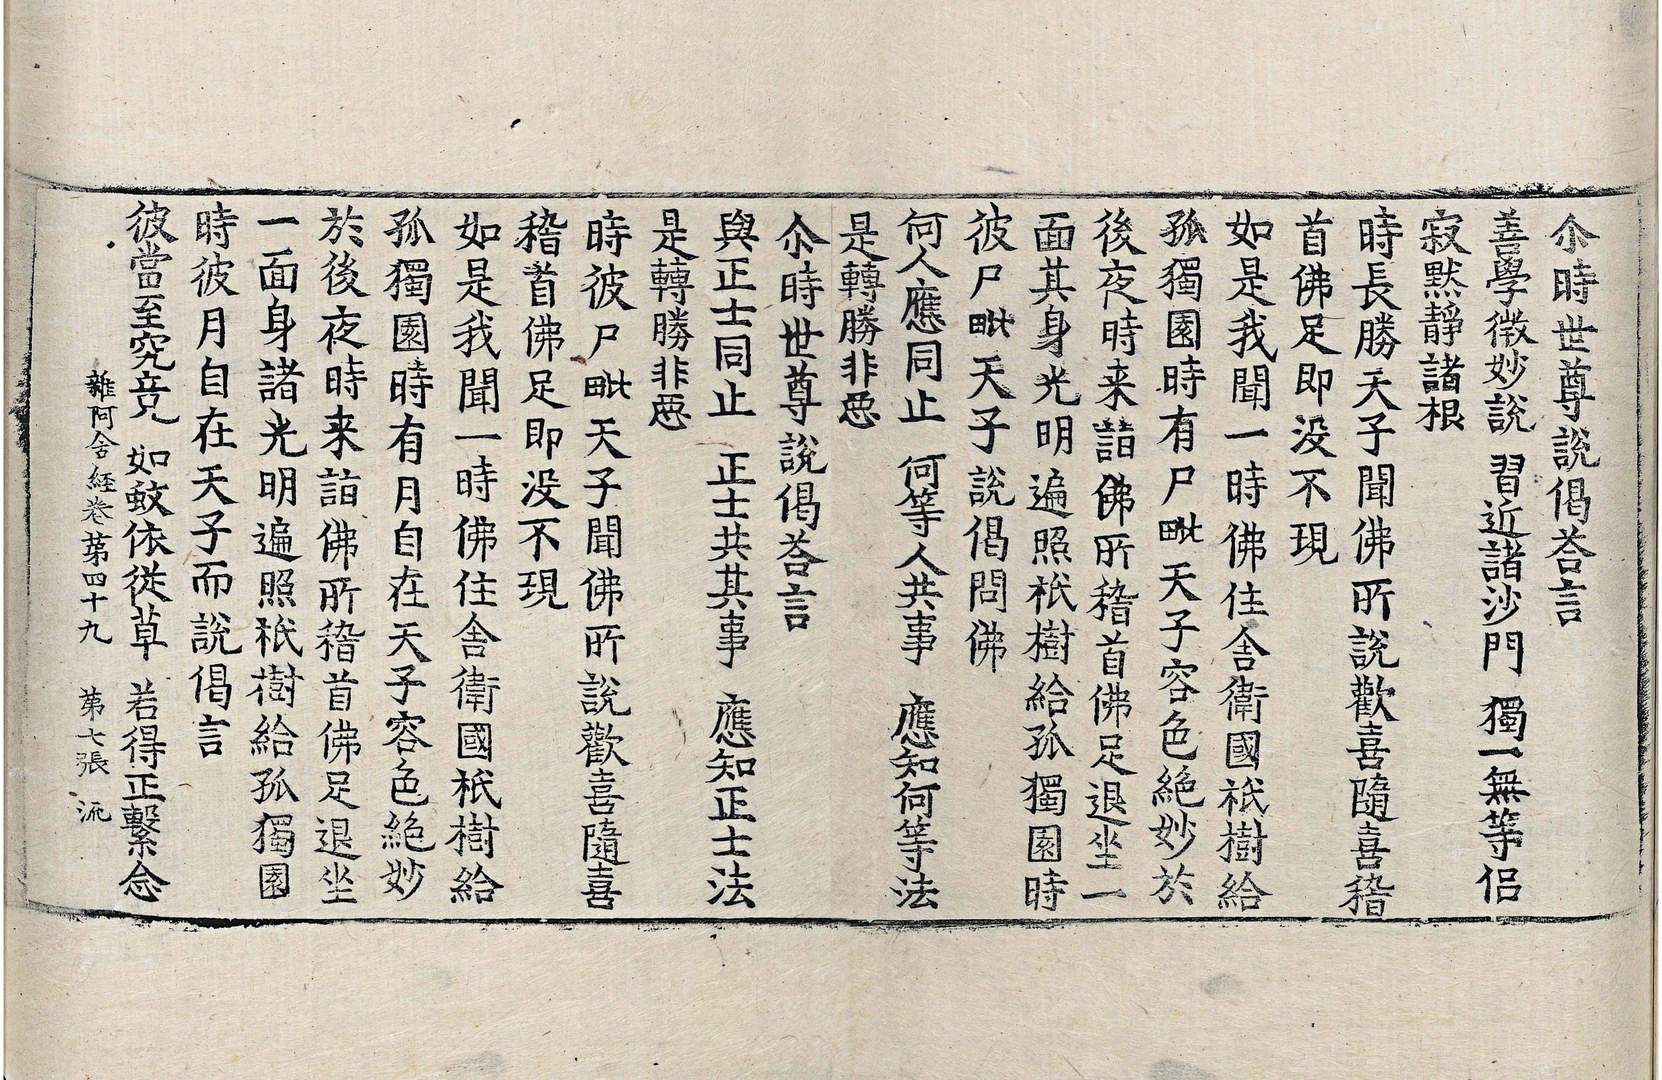 尒時世尊說偈荅言
善學微妙說　習近諸沙門　獨一無等侣
寂黙靜諸根
時長勝天子聞佛所說歡喜隨喜稽
首佛足即没不現
如是我聞一時佛住舍衛國祇樹給
孤獨園時有尸毗天子容色絶妙於
後夜時来詣佛所稽首佛足退坐一
面其身光明遍照祇樹給孤獨園時
彼尸毗天子說偈問佛
何人應同止　何等人共事　應知何等法
是轉勝非惡
尒時世尊說偈荅言
與正士同止　正士共其事　應知正士法
是轉勝非惡
時彼尸毗天子聞佛所說歡喜隨喜
稽首佛足即没不現
如是我聞一時佛住舍衛國祇樹給
孤獨園時有月自在天子容色絶妙
於後夜時来詣佛所稽首佛足退坐
一面身諸光明遍照祇樹給孤獨園
時彼月自在天子而說偈言
彼當至究竟　如蚊依從草　若得正繫念
雜阿含経卷苐四十九　第七張　流